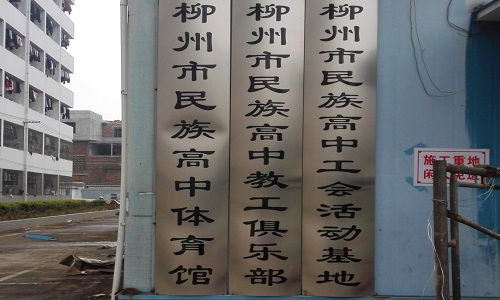 柳州市民族高中体育馆
柳州市民族高中教工俱乐部
柳州市民族高中工会活动基地
施工重地
闲